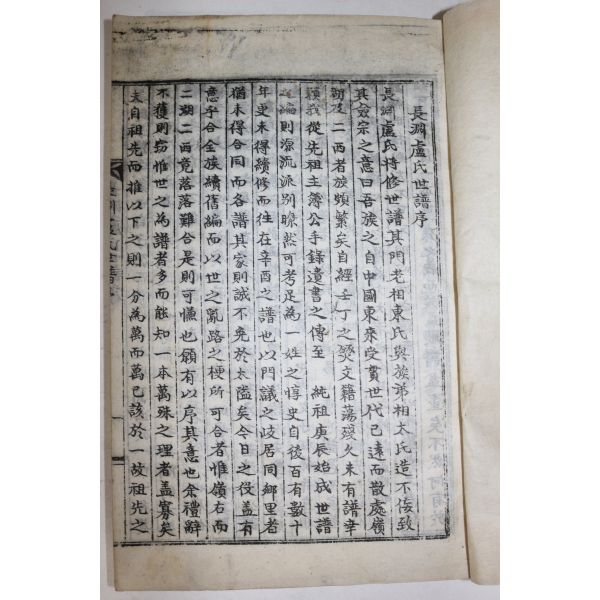 長淵盧氏世譜序
長淵盧氏將修世譜其門老相東氏與族弟相太氏造不佞致
其僉宗之意曰吾族之自中國東來受貫世代已遠而散處嶺
湖及二西者族頗繁矣自經壬丁之燹文籍蕩殘久未有譜幸
賴我從先祖主簿公手錄遺書之傳至 純祖庚辰始成世譜
一編則源流派別瞭然可考足為一姓之惇史自後百有數十
年更未得續修而往在辛酉之譜也以門議之歧居同鄉里者
猶未得合同而各譜其家則誠不免於太隘矣今日之役盖有
意乎合全族續舊編而以世之亂路之梗所可合者惟嶺右而
二湖二西竟落落難合是則可慨也願有以序其意也余禮辭
不獲則竊惟世之為譜者多而能知一本萬殊之理者盖寡矣
夫自祖先而推以下之則一分為萬而萬已該於一故祖先之
長淵盧氏世譜序